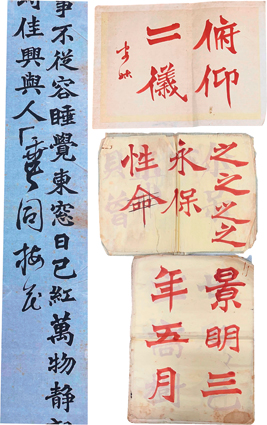 事不從容睡覺東窓日已紅萬物靜觀
時佳興與人同
俯仰
二儀
之之之之
永保
性命
景明三
年五月